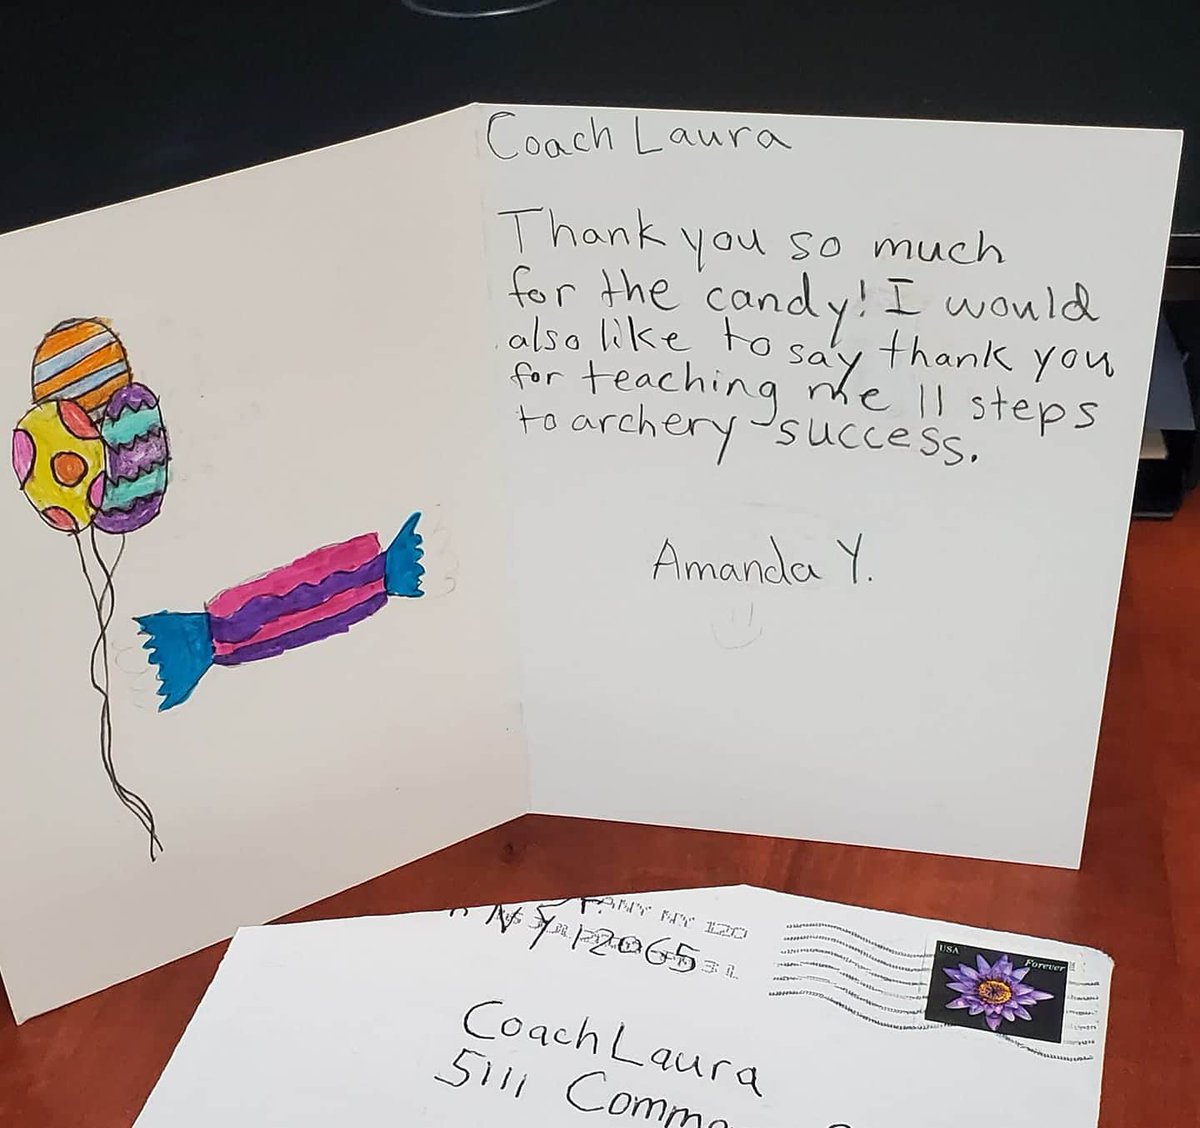 Coach Laura
Thank you so much
for the candy! I would
also like to say thank you
for teaching me 11 steps
to archery success.
Amanda Y.
NY 12065
ANY NY 120
USA
Forever
Coach Laura
5111 Comm